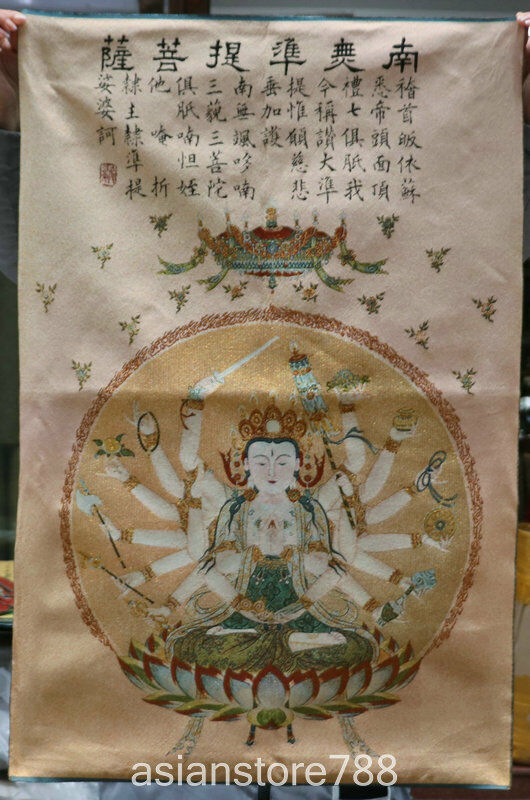 南無準提菩薩
稽首皈依蘇
悉帝頭面頂
禮七俱胝我
今稱讚大準
提惟願慈悲
垂加護
南無颯哆喃
三藐三菩陀
俱胝喃怛姪
他 唵 折
隸主隸準提
娑婆訶
asianstore788